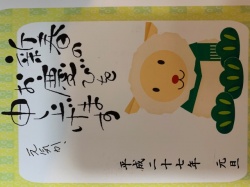 新春の
お慶びを
申し上げます
元気か、
平成二十七年 元旦